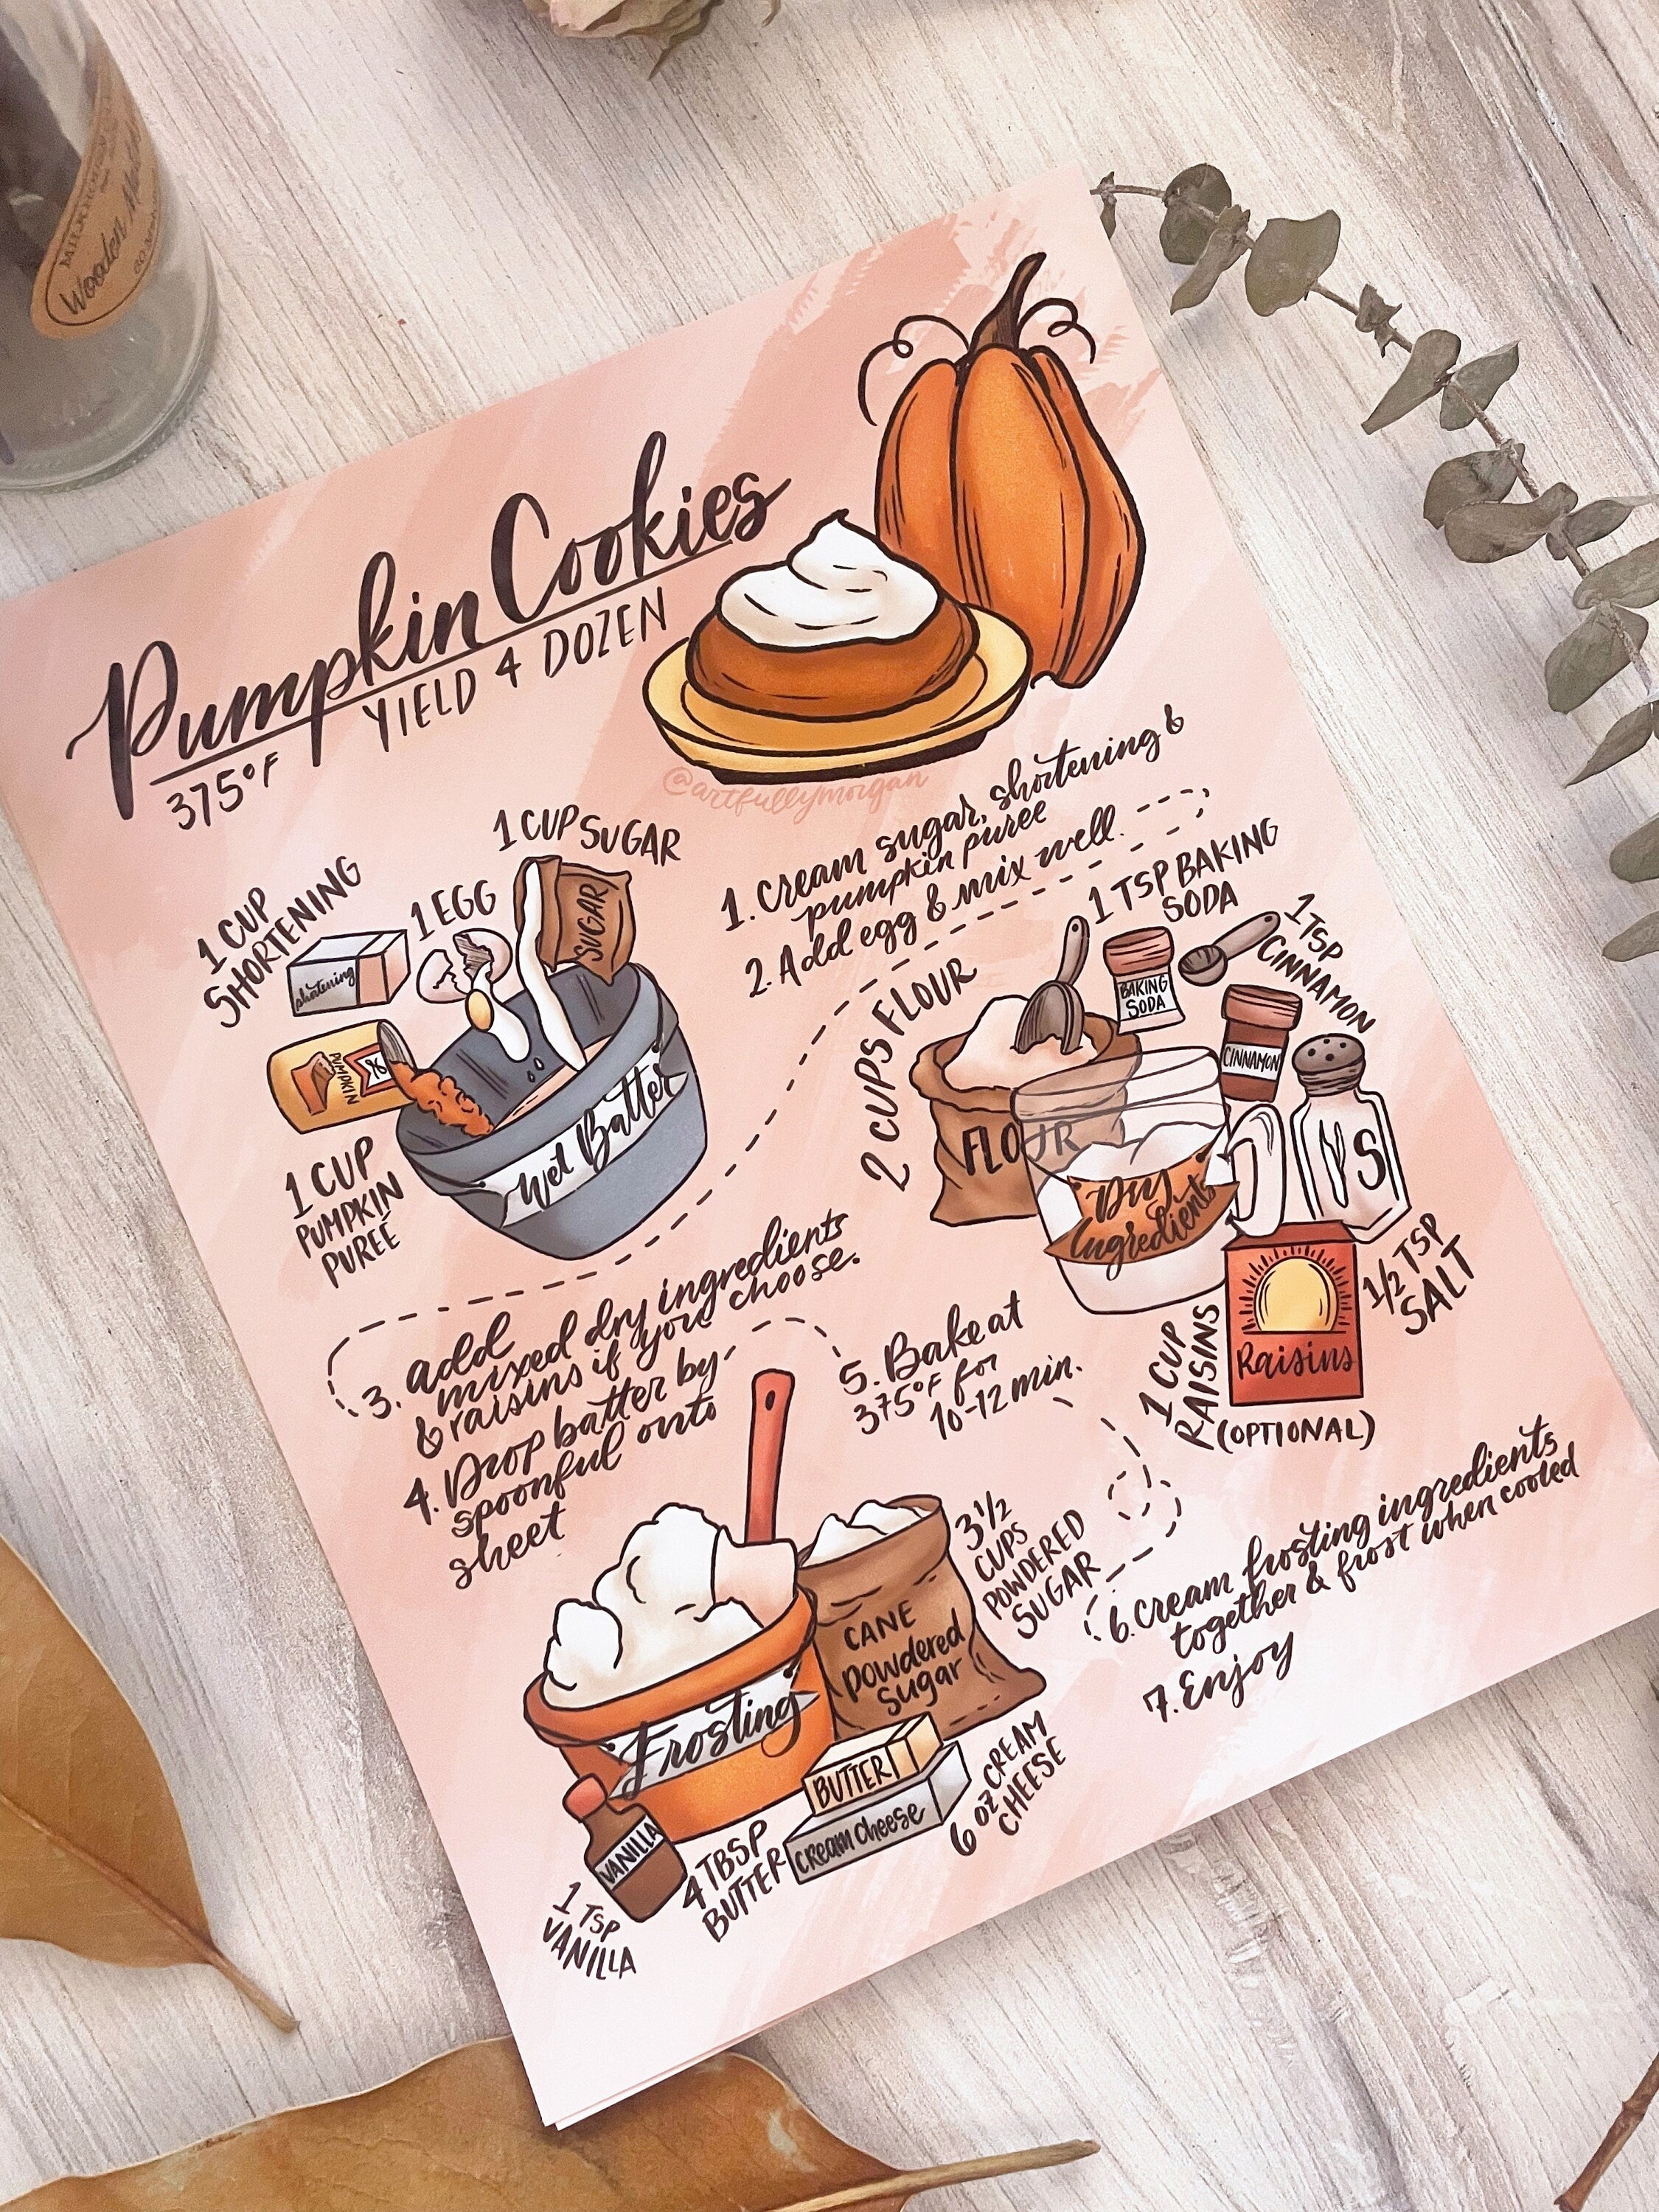 Wooden
Pumpkin Cookies
375°F YIELD 4 DOZEN
@artfullymorgan
1 CUP
SHORTENING
1 EGG
1 CUP SUGAR
shortening
SUGAR
PUMPKIN
Wet Batter
1 CUP
PUMPKIN
PUREE
1. Cream sugar, shortening &
pumpkin puree
2. Add egg & mix well.
2 CUPS FLOUR
1 TSP BAKING
SODA
1 TSP
CINNAMON
BAKING
SODA
CINNAMON
FLOUR
Dry
Ingredients
S
1/2 TSP
SALT
Raisins
1 CUP
RAISINS
(OPTIONAL)
3. add
mixed dry ingredients
& raisins if you choose.
4. Drop batter by
spoonful onto
sheet
5. Bake at
375°F for
10-12 min.
Frosting
CANE
Powdered
Sugar
3 1/2
CUPS
POWDERED
SUGAR
BUTTER
cream cheese
6 oz CREAM
CHEESE
VANILLA
1 TSP
VANILLA
4 TBSP
BUTTER
6. Cream frosting ingredients
together & frost when cooled
7. Enjoy